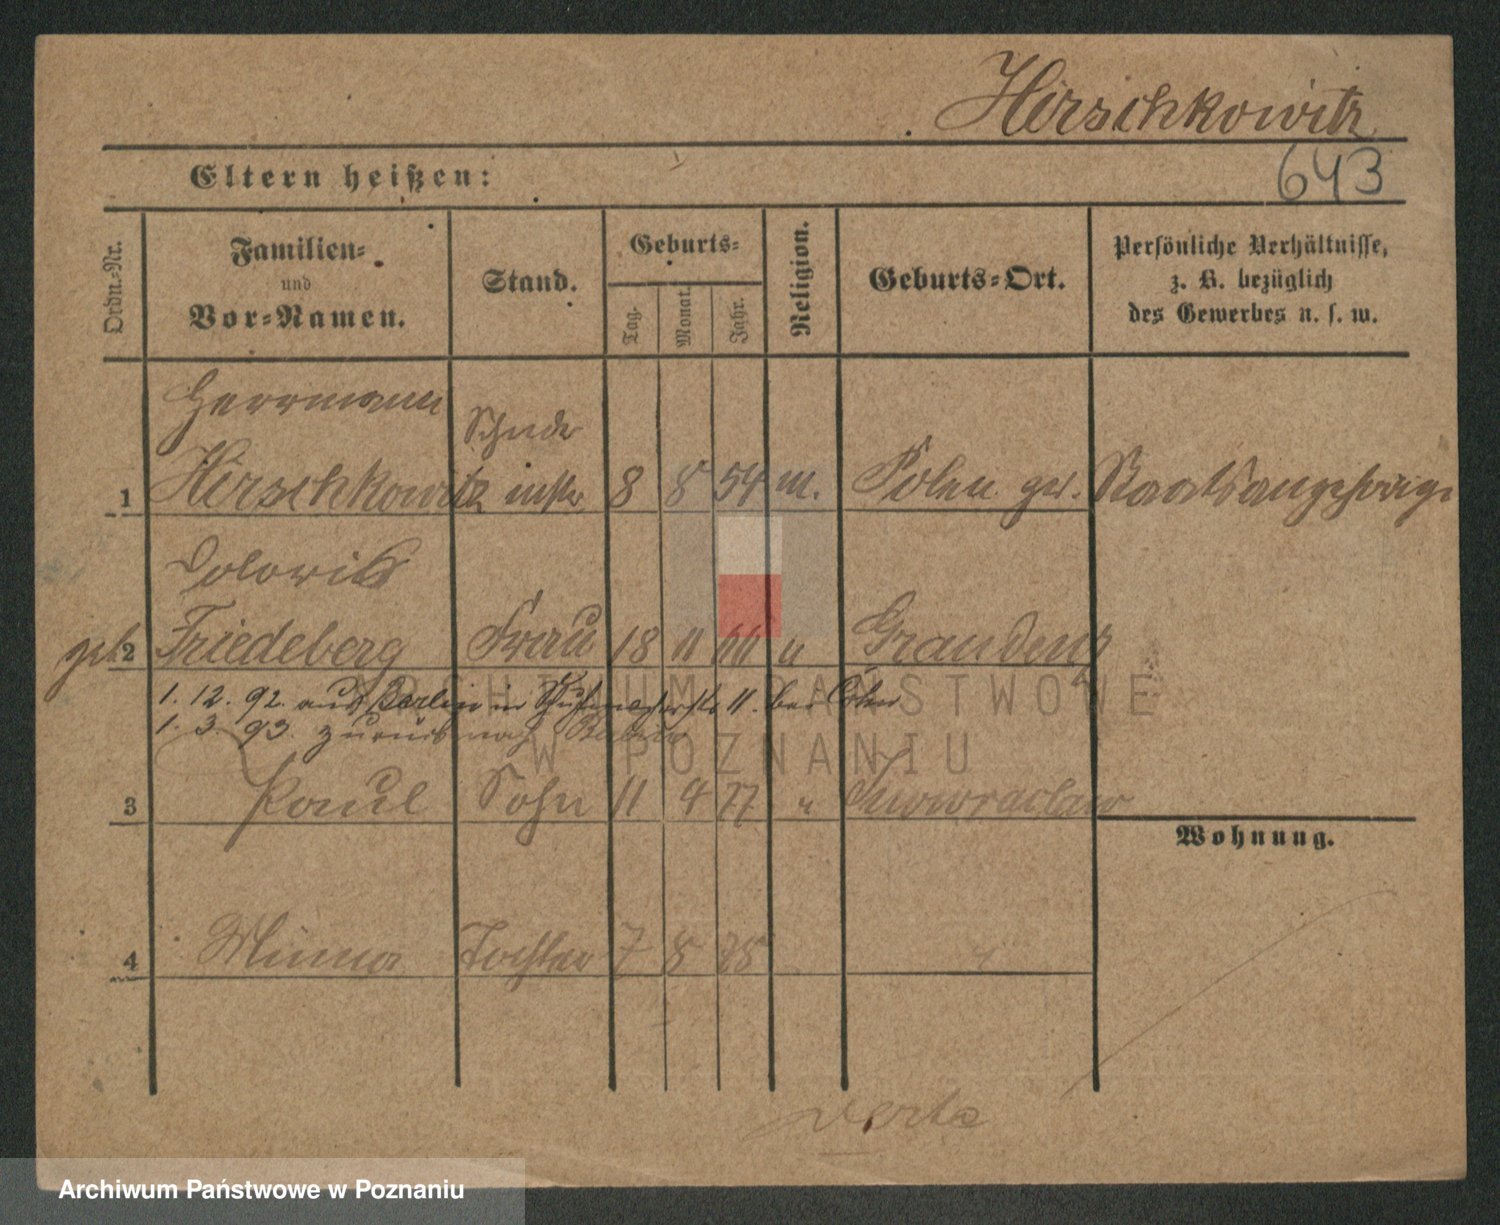 Hirschkowitz
643
Eltern heißen:
Ordn.-Nr.
Familien-
und
Vor-Namen.
Stand.
Geburts-
Tag.
Monat.
Jahr.
Religion.
Geburts-Ort.
Persönliche Verhältnisse,
z. B. bezüglich
des Gewerbes u. s. w.
Herrmann
Schndr
1 Hirschkowitz mstr 8 8 54 m. Polen
Staatsangehörige
geb. 2 Friedeberg Frau 18 11 Graudenz
1. 12. 92. aus Berlin in 11. bei
1. 3. 93. zurück nach
3 Paul Sohn 11 4 77 " Inowraclaw
Wohnung.
4 Minna Tochter 7 8 78 "
verte
ARCHIWUM PAŃSTWOWE
W POZNANIU
Archiwum Państwowe w Poznaniu